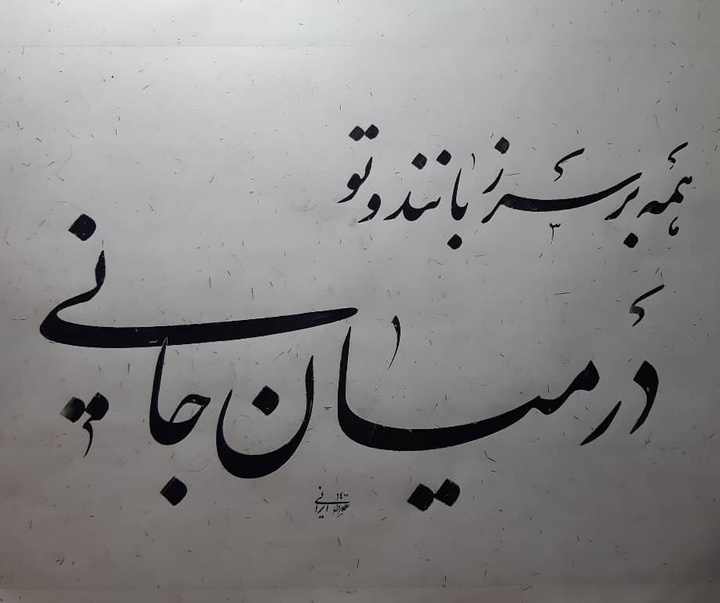 همه بر سر زبانند و تو
در میان جانی
ایرانی ۱۴۰۰